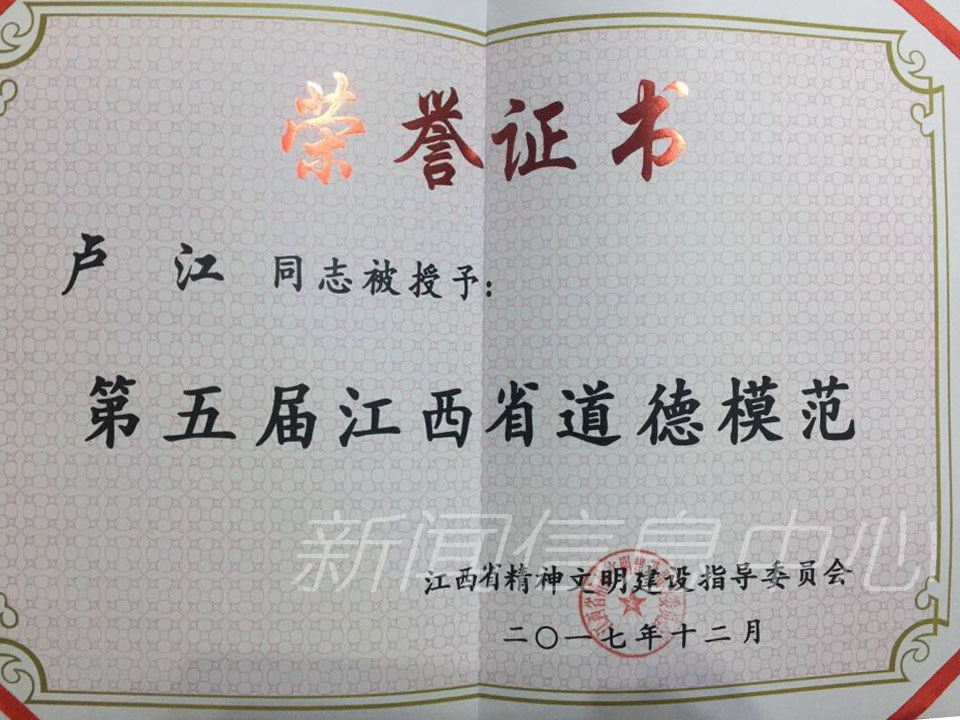 荣誉证书
卢江 同志被授予:
第五届江西省道德模范
新闻信息中心
江西省精神文明建设指导委员会
二〇一七年十二月